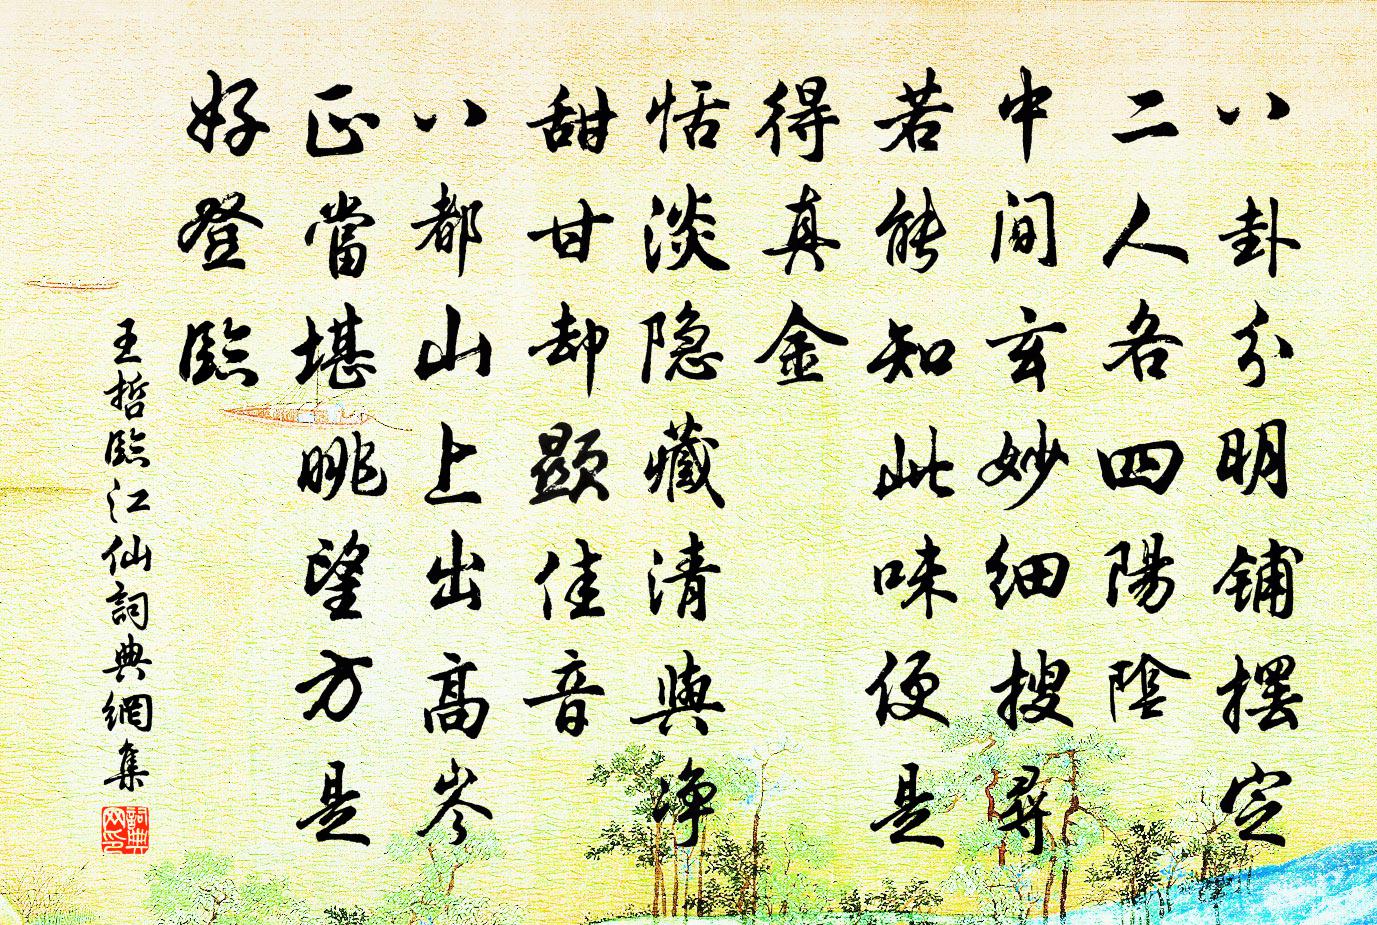 八卦分明铺摆定
二人各四陽陰
中间玄妙细搜尋
若能知此味便是
得真金
恬淡隐藏清與净
甜甘却顯佳音
八都山上出高岑
正當堪眺望方是
好登臨
王哲臨江仙詞典網集
詞典網印